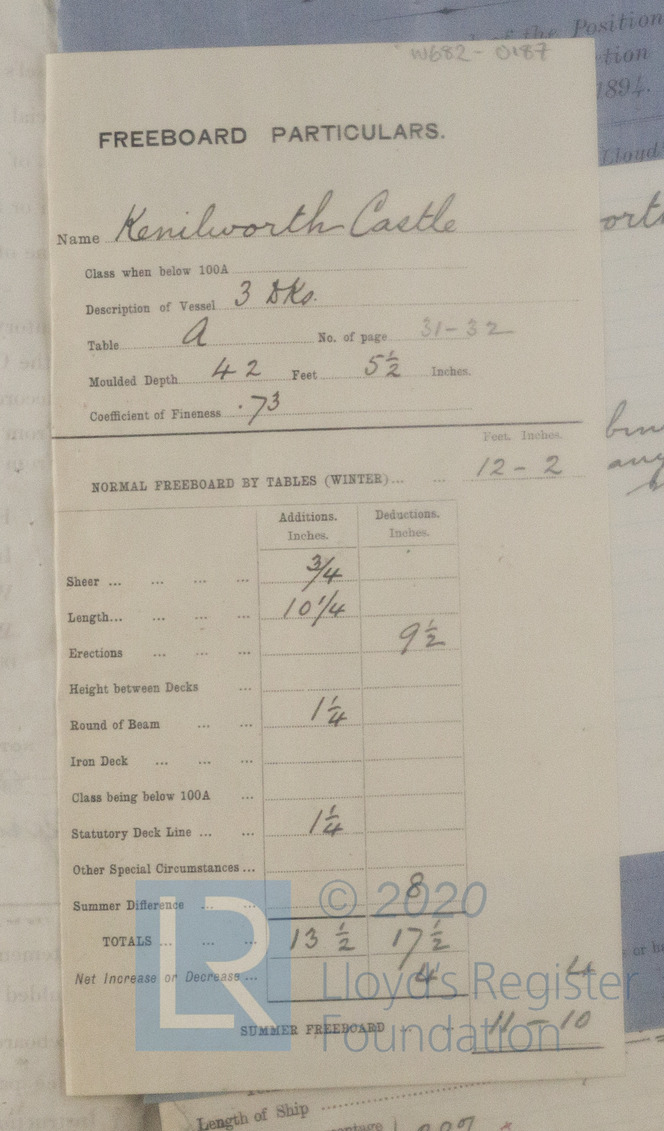 of the Position
W682-0187
tion
1894.
FREEBOARD PARTICULARS.
Lloyd's
Name Kenilworth Castle
Class when below 100A
Description of Vessel 3 Dks.
Table A No. of page 31-32
Moulded Depth 42 Feet 5½ Inches.
Coefficient of Fineness .73
Feet. Inches.
NORMAL FREEBOARD BY TABLES (WINTER)... ... 12-2
Additions. Deductions.
Inches. Inches.
Sheer ... ... ... ... 3/4
Length... ... ... ... 10 1/4
Erections ... ... ... 9½
Height between Decks ...
Round of Beam ... ... 1¼
Iron Deck ... ... ...
Class being below 100A ...
Statutory Deck Line ... ... 1¼
Other Special Circumstances ...
Summer Difference ... ... 8
TOTALS ... ... ... 13½ 17½
Net Increase or Decrease ... 4 4
SUMMER FREEBOARD 11-10
LR
© 2020
Lloyd's Register
Foundation
Length of Ship